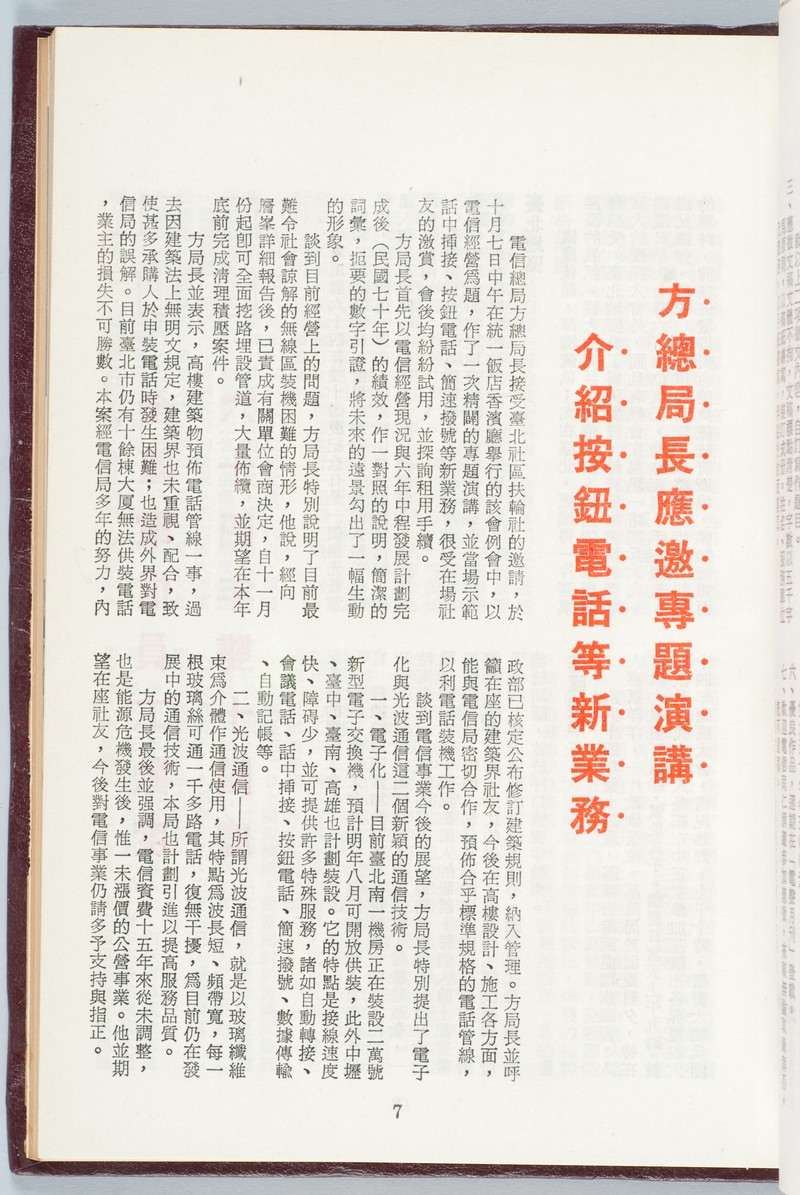 方總局長應邀專題演講
介紹按鈕電話等新業務
電信總局方總局長接受臺北社區扶輪社的邀請，於
十月七日中午在統一飯店香濱廳舉行的該會例會中，以
電信經營爲題，作了一次精闢的專題演講，並當場示範
話中挿接、按鈕電話、簡速撥號等新業務，很受在場社
友的激賞，會後均紛紛試用，並探詢租用手續。
方局長首先以電信經營現況與六年中程發展計劃完
成後（民國七十年）的績效，作一對照的說明，簡潔的
詞彙，扼要的數字引證，將未來的遠景勾出了一幅生動
的形象。
談到目前經營上的問題，方局長特別說明了目前最
難令社會諒解的無線區裝機困難的情形，他說，經向
層峯詳細報告後，已責成有關單位會商決定，自十一月
份起卽可全面挖路埋設管道，大量佈纜，並期望在本年
底前完成淸理積壓案件。
方局長並表示，高樓建築物預佈電話管線一事，過
去因建築法上無明文規定，建築界也未重視、配合，致
使甚多承購人於申裝電話時發生困難；也造成外界對電
信局的誤解。目前臺北市仍有十餘棟大厦無法供裝電話
，業主的損失不可勝數。本案經電信局多年的努力，內
政部已核定公布修訂建築規則，納入管理。方局長並呼
籲在座的建築界社友，今後在高樓設計、施工各方面，
能與電信局密切合作，預佈合乎標準規格的電話管線，
以利電話裝機工作。
談到電信事業今後的展望，方局長特別提出了電子
化與光波通信這二個新穎的通信技術。
一、電子化——目前臺北南一機房正在裝設二萬號
新型電子交換機，預計明年八月可開放供裝，此外中壢
、臺中、臺南、高雄也計劃裝設。它的特點是接線速度
快、障碍少，並可提供許多特殊服務，諸如自動轉接、
會議電話、話中挿接、按鈕電話、簡速撥號、數據傳輸
、自動記帳等。
二、光波通信——所謂光波通信，就是以玻璃纖維
束爲介體作通信使用，其特點爲波長短、頻帶寬，每一
根玻璃絲可通一千多路電話，復無干擾，爲目前仍在發
展中的通信技術，本局也計劃引進以提高服務品質。
方局長最後並强調，電信資費十五年來從未調整，
也是能源危機發生後，惟一未漲價的公營事業。他並期
望在座社友，今後對電信事業仍請多予支持與指正。
7